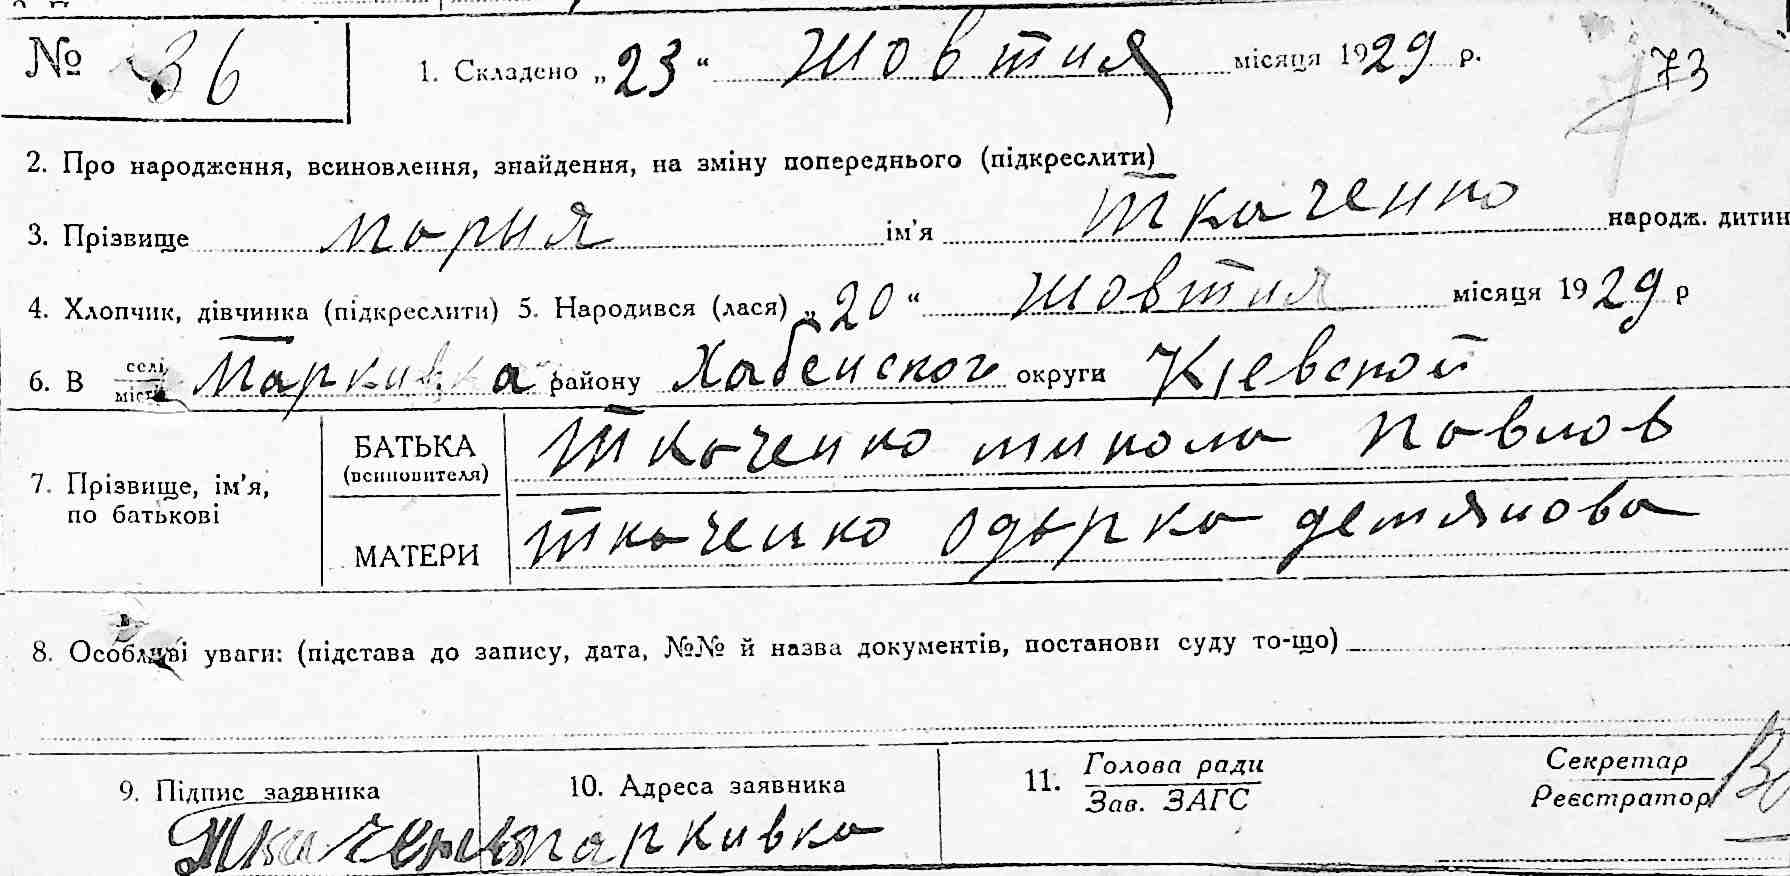 № 36 1. Складено „23“ Жовтня місяця 1929 р. 73
2. Про народження, всиновлення, знайдення, на зміну попереднього (підкреслити)
3. Прізвище Мария ім’я Ткаченко народж. дитин
4. Хлопчик, дівчинка (підкреслити) 5. Народився (лася) „20“ Жовтня місяця 1929 р
6. В селі місті Марківка району Хабенского округи Кіевской
7. Прізвище, ім’я, по батькові
БАТЬКА (всиновителя) Ткаченко микола Павлов
МАТЕРИ ткаченко одарка демянова
8. Особливі уваги: (підстава до запису, дата, №№ й назва документів, постанови суду то-що)
9. Підпис заявника 10. Адреса заявника 11. Голова ради Зав. ЗАГС Секретар Реєстратор
Ткаченко маркивка